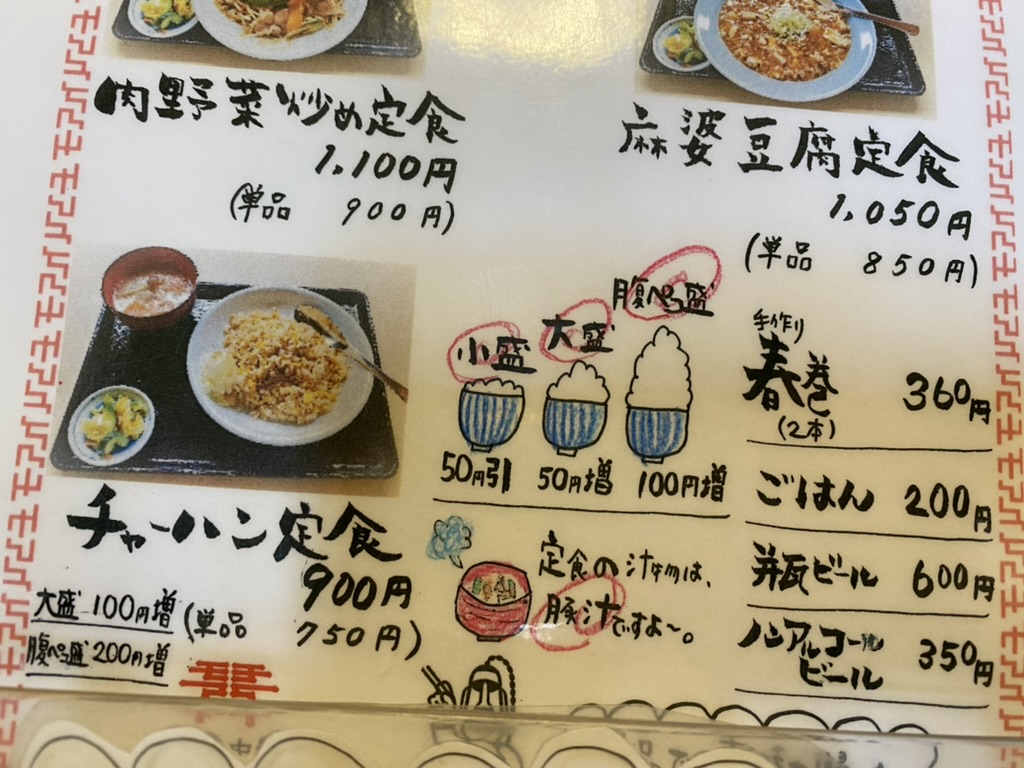 肉野菜炒め定食
1,100円
(単品 900円)
麻婆豆腐定食
1,050円
(単品 850円)
小盛
大盛
腹ぺこ盛
50円引
50円増
100円増
手作り
春巻
(2本)
360円
ごはん 200円
瓶ビール 600円
ノンアルコール
ビール
350円
チャーハン定食
900円
(単品 750円)
大盛 100円増
腹ぺこ盛 200円増
定食の汁物は、
豚汁ですよ〜。